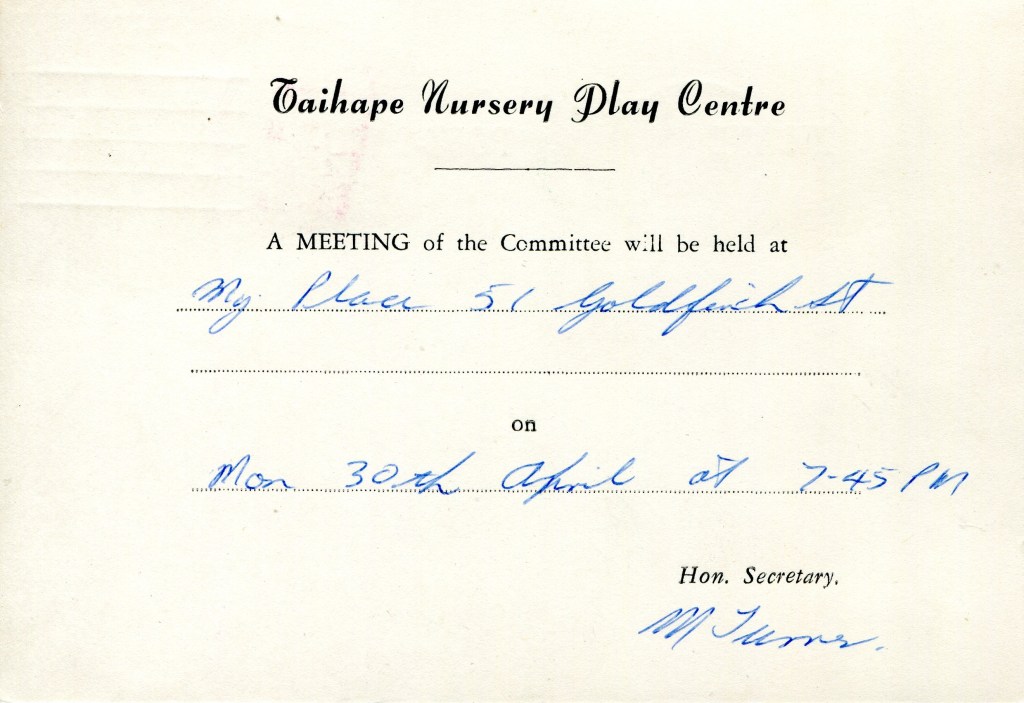 Taihape Nursery Play Centre
A MEETING of the Committee will be held at
My Place 51 Goldfinch St
on
Mon 30th April at 7-45 PM
Hon. Secretary.
M Turner.